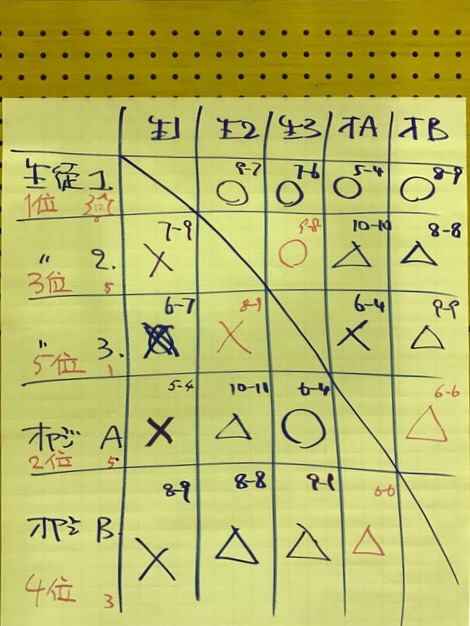 生1 生2 生3 オA オB
生徒 1. 9-7 7-6 5-4 8-9
○ ○ ○ ○
1位
7-9 9-8 8-8
〃 2. × ○ △ △
3位 5
6-7 8-9 6-4 9-9
〃 3. × × △
5位 1
5-4 6-4 6-6
オヤジ A × △ ○ △
2位 5
8-9 8-8 6-6
オヤジ B. × △ △ △
4位 3